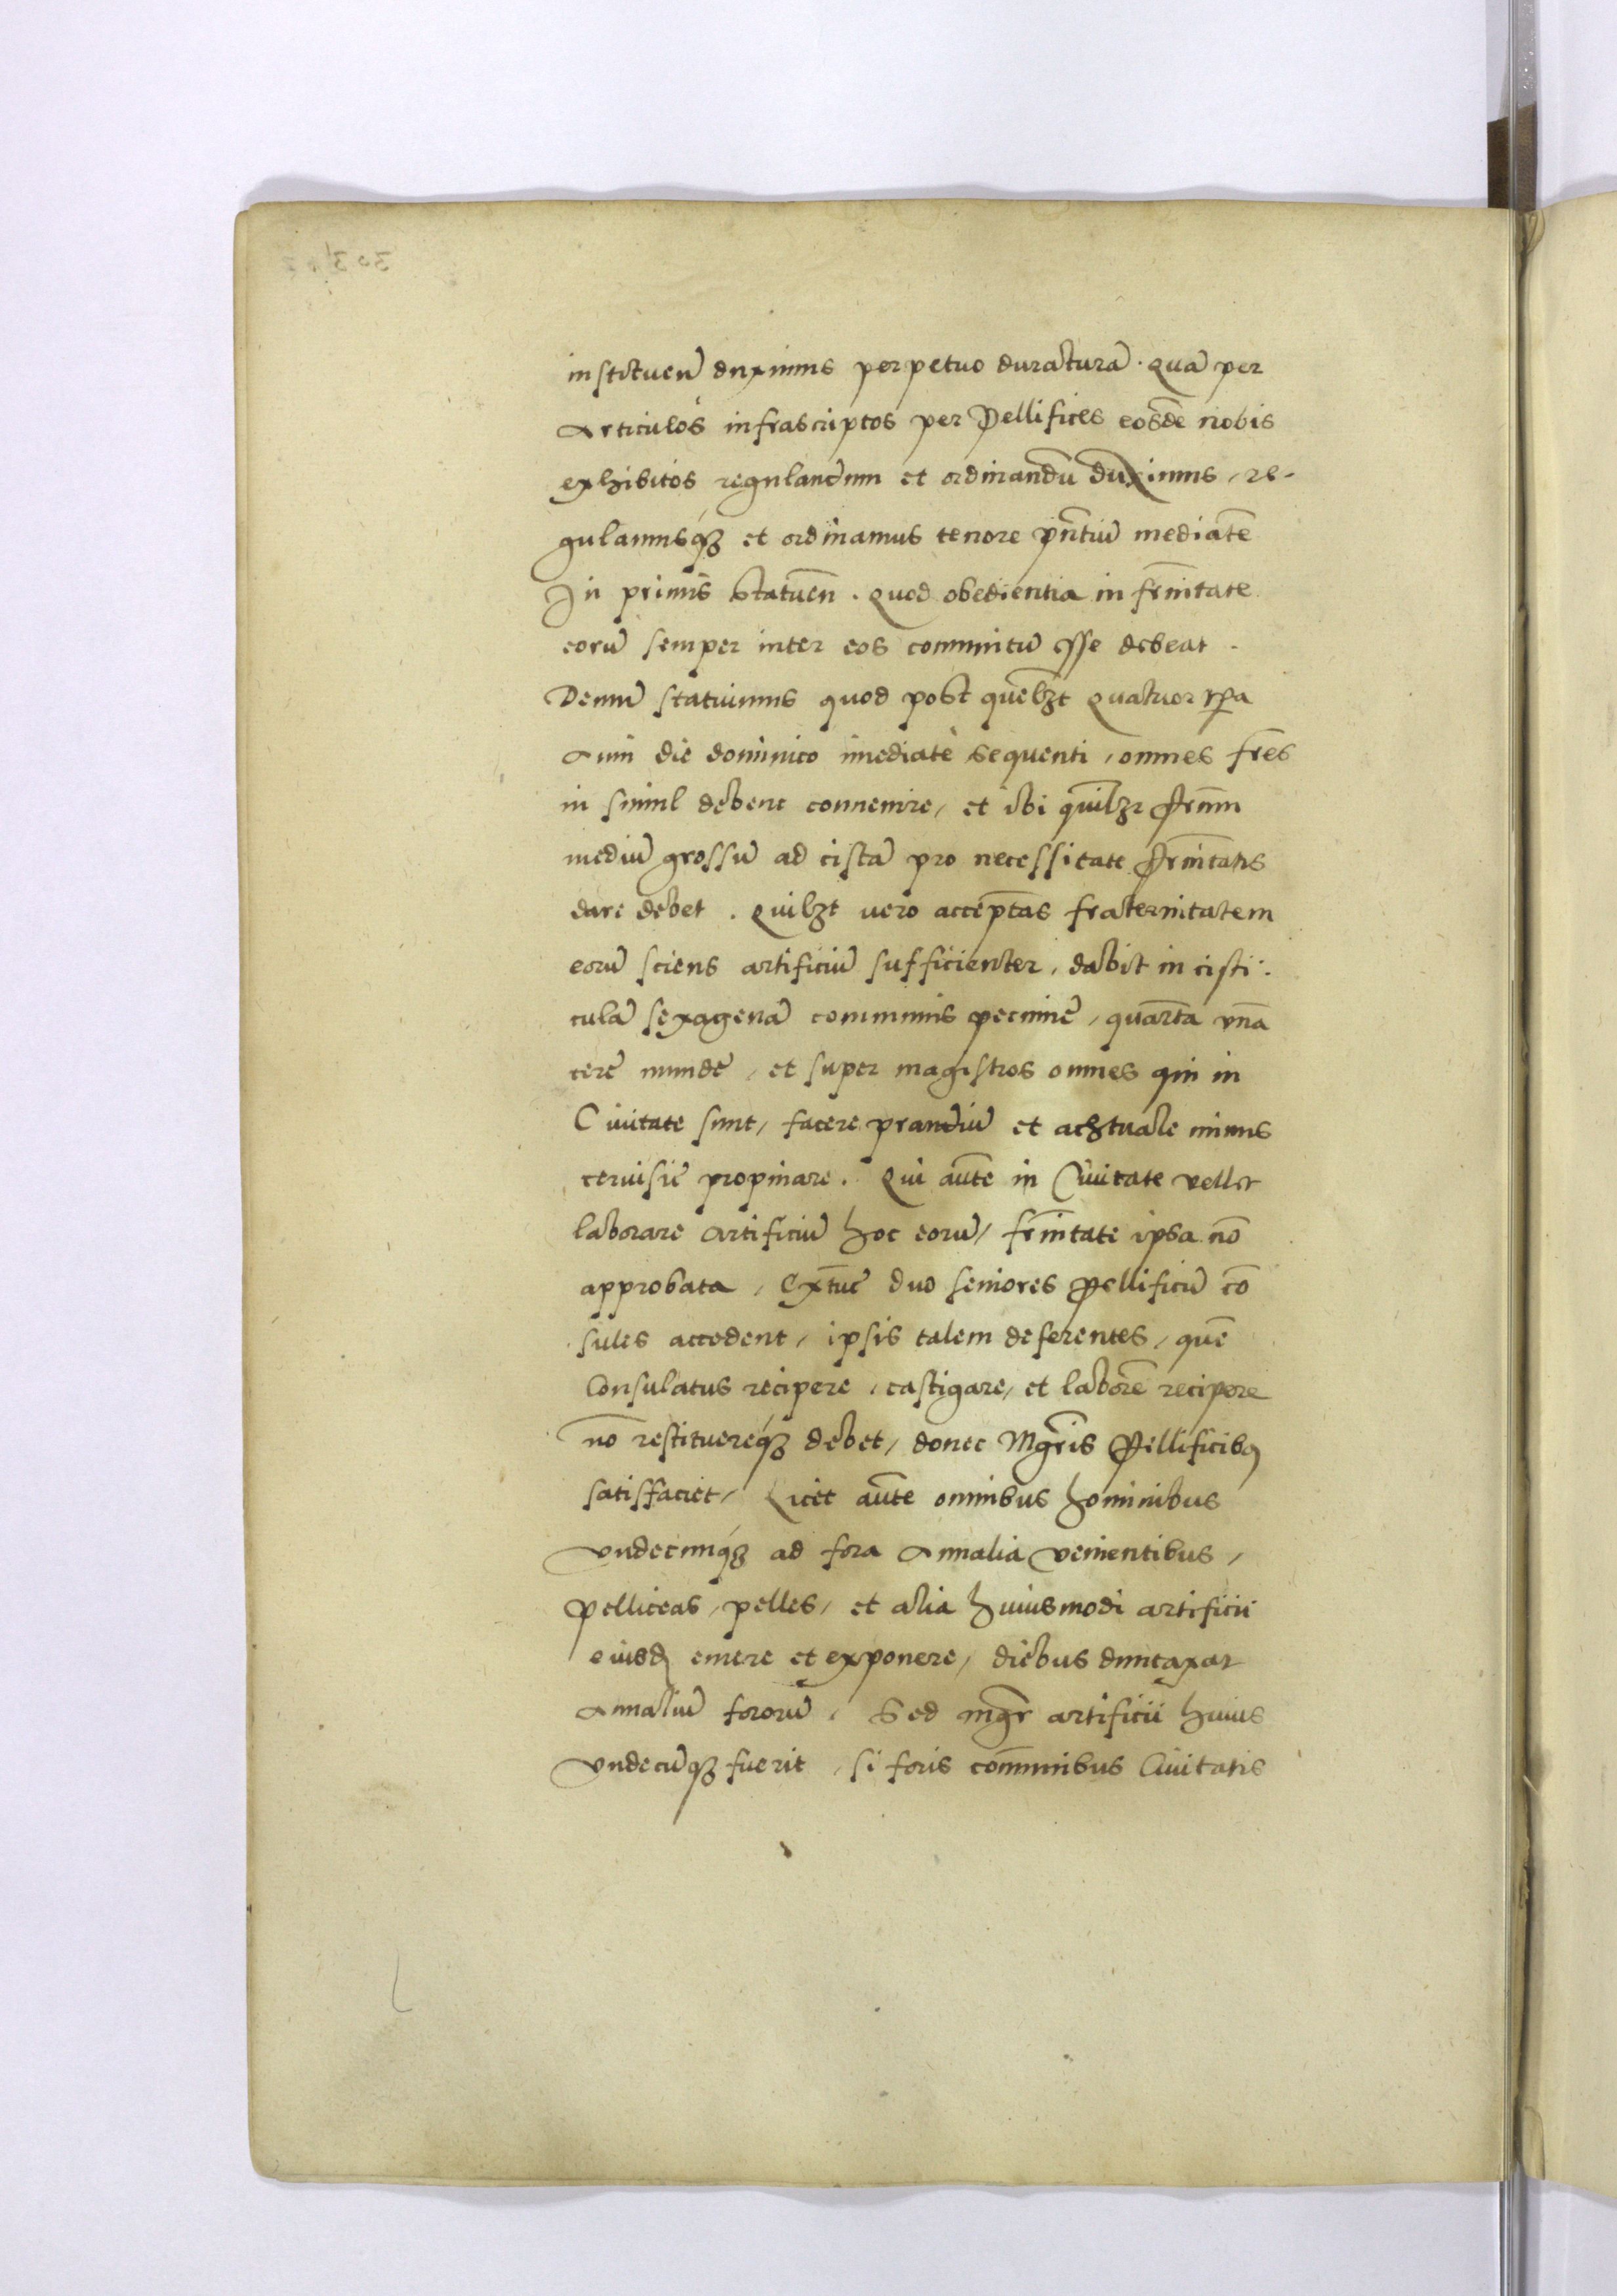 instituen̄ duximus perpetuo duraturā. Quā per
Articulos infrascriptos per Pellifices eosdē nobis
exhibitos regulandum et ordinandū duximus, re-
gulamusq3 et ordinamus tenore pn̄tiū mediāte
In primis statuen̄. Quod obedientia in frn̄itate
eorū semper inter eos communitū esse debeat.
Demū statuimus quod post quēlzt Quatuor tp̄a
Anni die dominico imediatè sequenti, omnes fr̄es
in simul debent conuenire, et ibi quilzt frūm
mediū grossū ad cistā pro necessitate frn̄itatis
dare debet. Quilzt uero accēptās fraternitatem
eorū sciens artificiū sufficienter, dabit in cisti:
culā sexagenā communis pecunie, quārta vnā
cere munde, et super magistros omnes qui in
Ciuitate sunt, facere prandiū et achtuale minus
ceruisie propinare. Qui aūte in Ciuitate vellet
laborare Artificiū hoc eorū, frn̄itate ipsa nō
approbata, Extūc duo seniores Pellificū cō
sules accedent, ipsis talem deferentes, quē
Consulatus recipere, castigare, et laborē recipere
nō restituereq3 debet, donec Mgr̄is Pellificibq
satisfaciet, Licet aūte omnibus hominibus
vndecunq3 ad fora Annalia venientibus,
pelliceas, pelles, et alia huiusmodi artificii
eiusdq emere et exponere, diebus duntaxat
Annaliū fororū, Sed mgr̄ artificii huius
vndecūq3 fuerit, si foris com̄unibus Ciuitatis